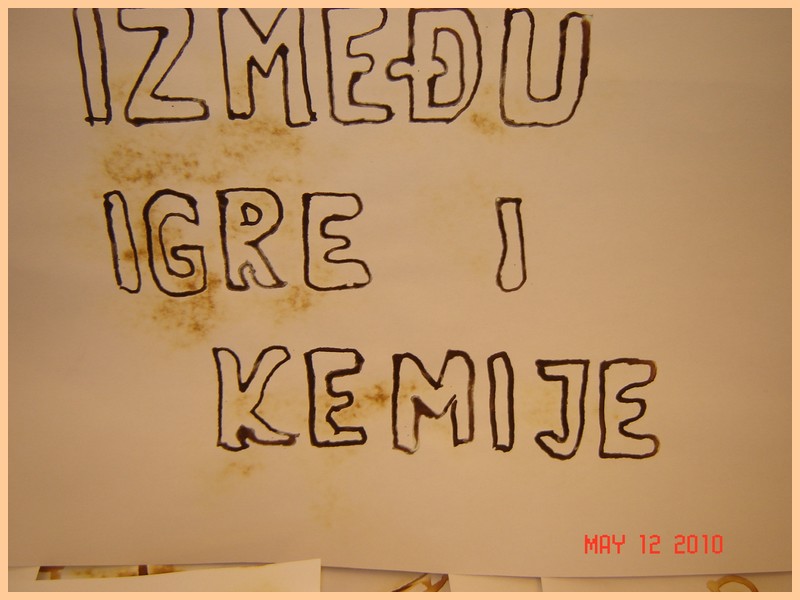 IZMEĐU
IGRE I
KEMIJE
MAY 12 2010